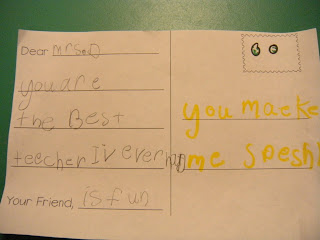 Dear mrs.D
you are
the Best
teecher I'v ever
Your Friend, is fun
you macke
me spesh!